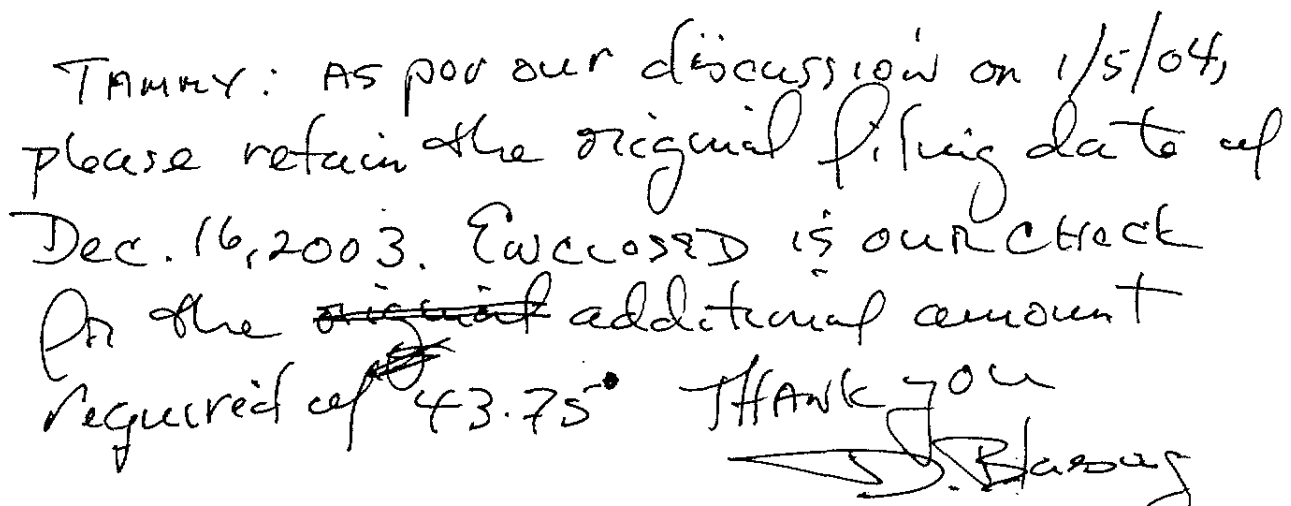 TAMMY: As per our discussion on 1/5/04,
please retain the original filing date of
Dec. 16, 2003. Enclosed is our check
for the additional amount
required of 43.75. Thank you
D.